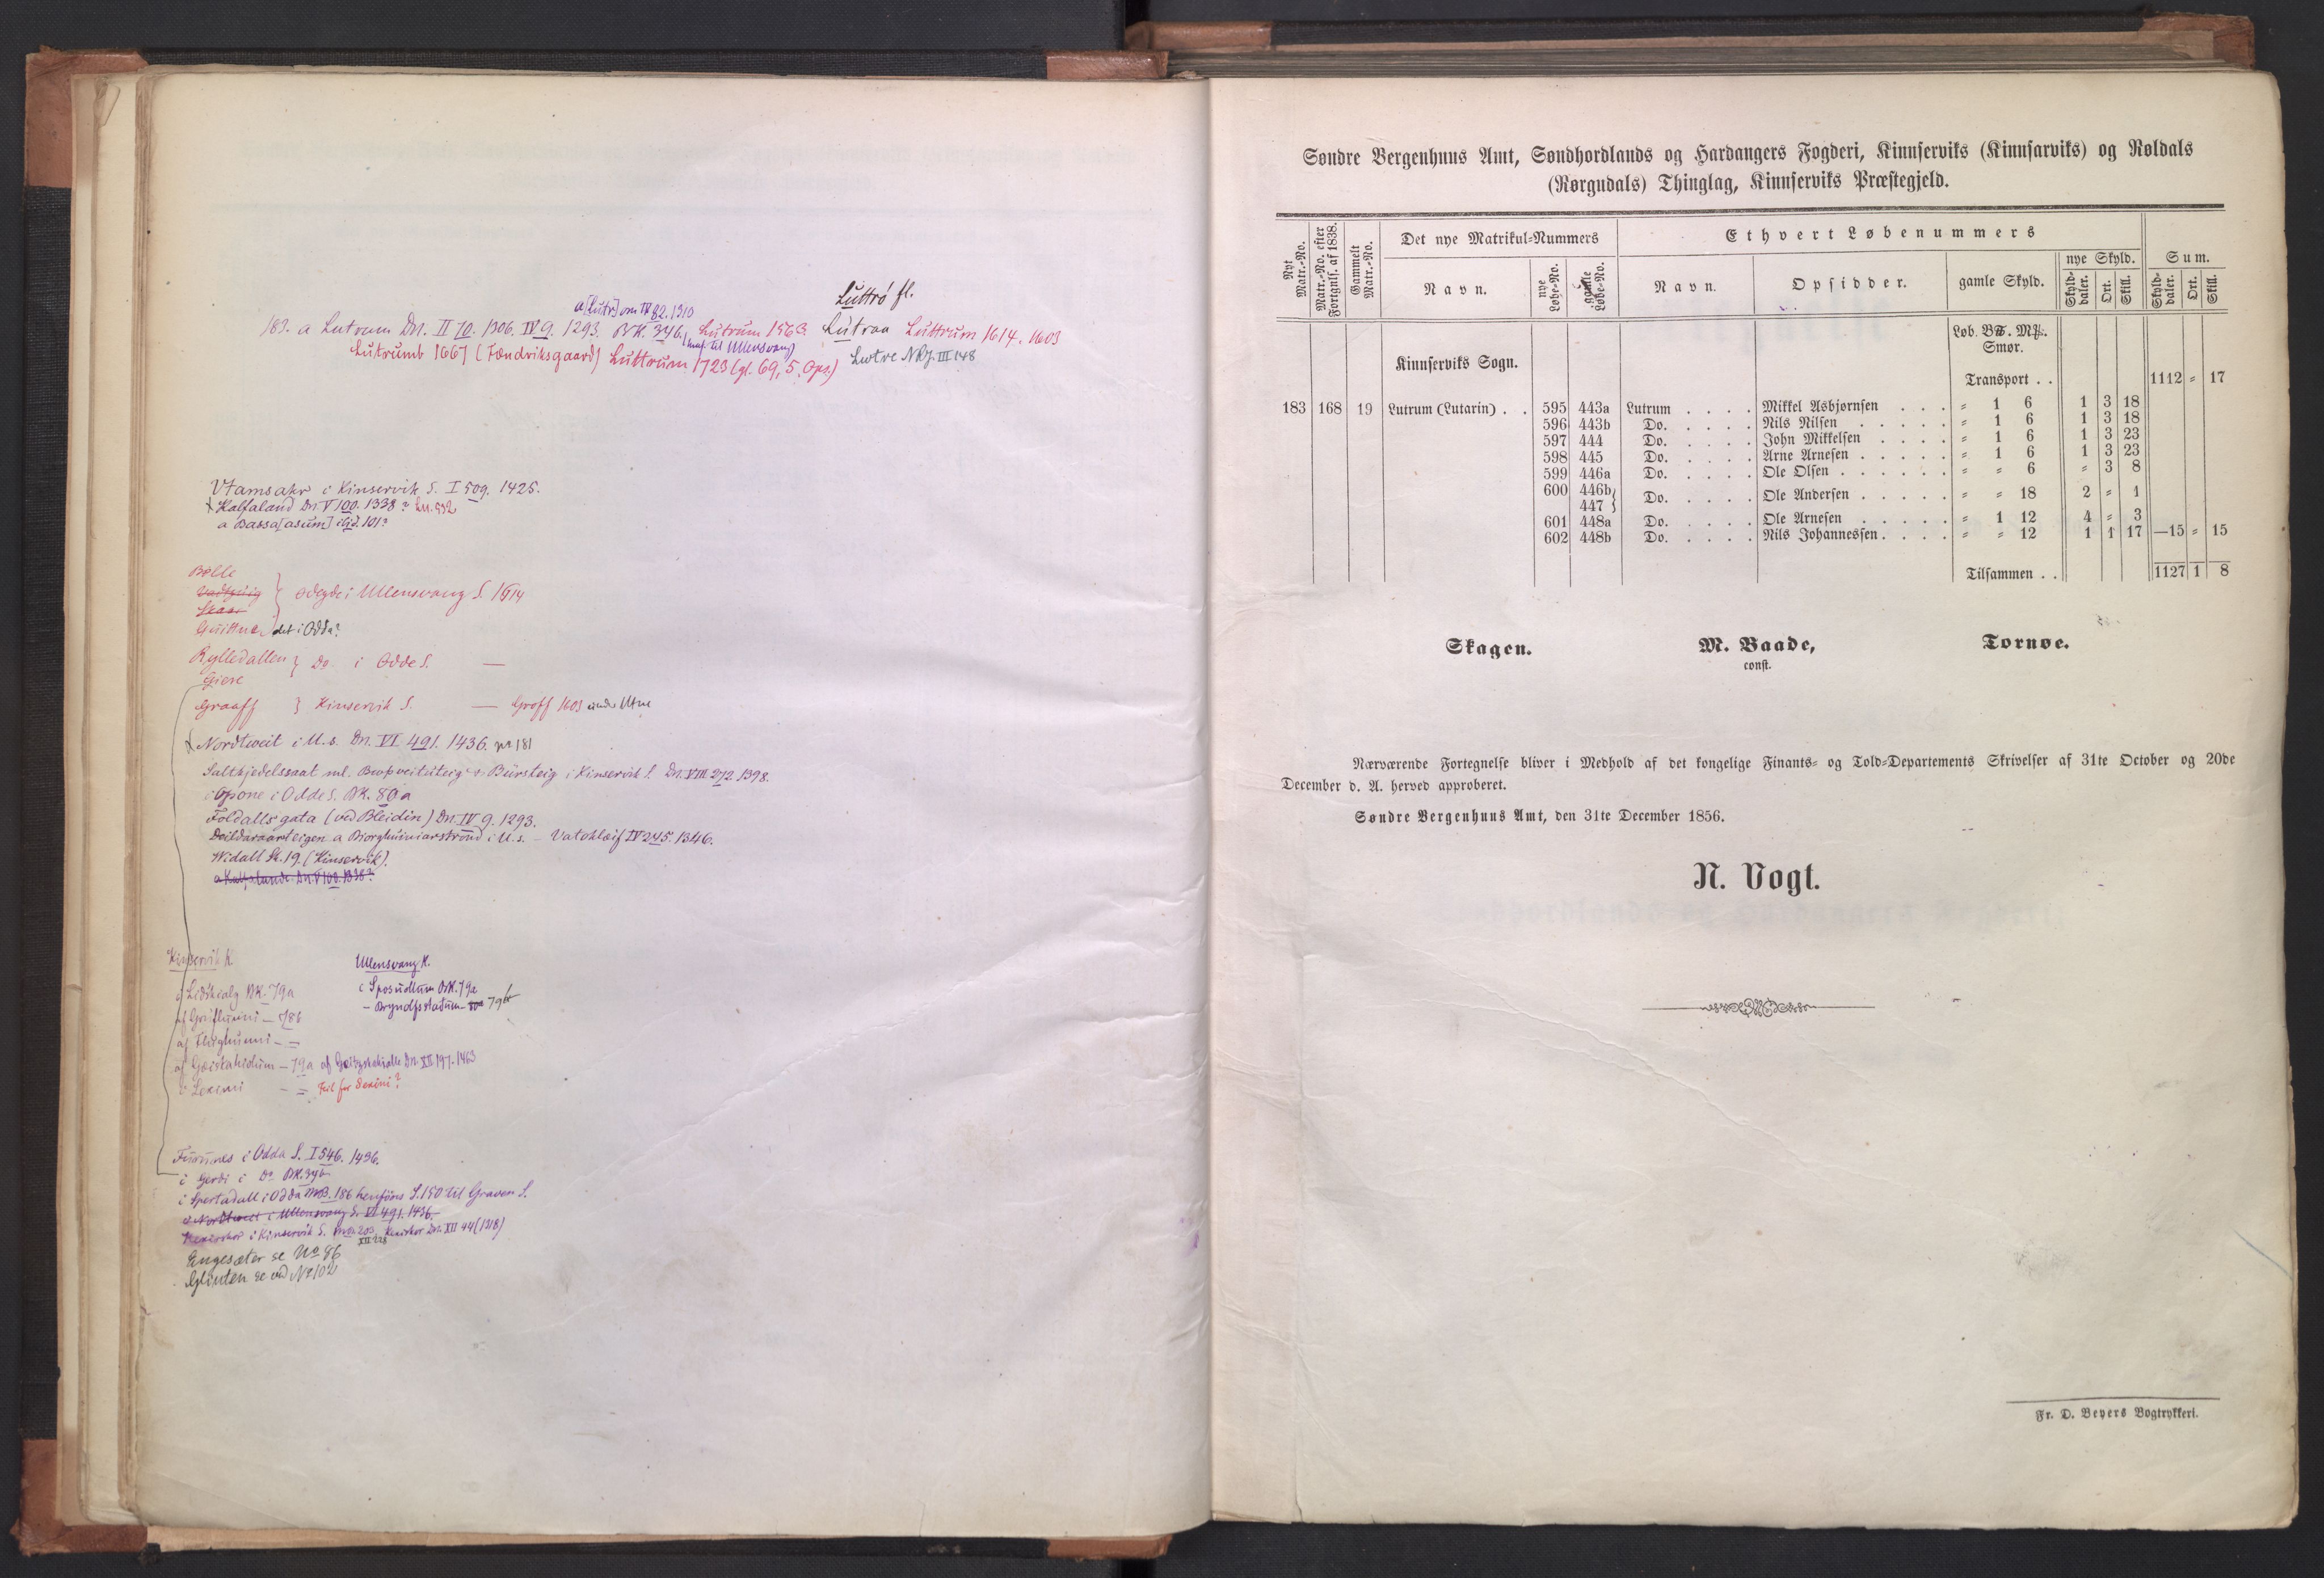 Luttró fl.
a [Lutr]om IV 82. 1310
183. a Lutrum Dn. II 70. 1306. IV 9. 1293. BK. 34b. Lutrum 1563 Lútraa Luttrum 1614. 1603
Lutrumb 1667 (Fændriksgaard) Luttrum 1723 (gl. 69, 5. Ops.) Lwtre NRJ. III 148
til Ullensvang)
Vtamsakr i Kinservik S. I 509. 1425.
Kalfaland Dn. V 100. 1338?
a Bassa[asum]
Bølle
Skaar
ødegde i Ullensvang S. 1614
det i Odda?
Rylledallen } Do. i Odde S. —
Giere
Graaff } Kinservik S. — Groff 1603 under Utne
Nordtweit i U. s. Dn. VI 491. 1436. nr. 181
Saltkjedelssaat ml. Burpveituteig o. Bursteig i Kinservik S. Dn. VIII 272. 1398.
i Opone i Odde S. BK. 80a
Foldallsgata (ved Bleidin) Dn. IV 9. 1293.
Deildaraarteigen a Biorghuiniarstrond i U. s. – Vatshlæif IV 245. 1346.
Widall St. 19. (Kinservik).
a Kalfalande Dn. V 100. 1338?
Kinservik K.
Ullensvang K.
i Lidskialg BK. 79a
i Sposudlum BK. 79a
– Bryndfsstadum 79b
af Geitskahidum – 79a af Geitzskahalle Dn. XII 197. 1463
i Lexini – = Feil for Dexini?
Furunes i Odda S. I 546. 1496.
i Gerdi i Do BK. 34b
i Spertadall i Odda MB. 186 henføres S. 150 til Graven S.
i Nordtweit i Ullensvang S. VI 491. 1436.
i Kinservik S. XII 44 (1318)
Engesæter se No 86
Glinten se ved No 102
Søndre Bergenhuus Amt, Søndhordlands og Hardangers Fogderi, Kinnserviks (Kinnsarviks) og Røldals
(Rørgudals) Thinglag, Kinnserviks Præstegjeld.
Nyt Matr.-No.
Matr.-No. efter Fortgnlf. af 1838.
Gammelt Matr.-No.
Det nye Matrikul-Nummers
Ethvert Løbenummers
Navn.
nye Løbe-No.
gamle Løbe-No.
Navn.
Opsidder.
gamle Skyld.
nye Skyld.
Skylddaler. Ort. Skill.
Sum.
Skylddaler. Ort. Skill.
Løb. B℔. M℔.
Smør.
Kinnserviks Sogn.
Transport . . 1112 = 17
183 168 19 Lutrum (Lutarin) . . 595 443a Lutrum . . . . Mikkel Asbjørnsen . . . = 1 6 1 3 18
596 443b Do. . . . . Nils Nilsen . . . . . = 1 6 1 3 18
597 444 Do. . . . . John Mikkelsen . . . . = 1 6 1 3 23
598 445 Do. . . . . Arne Arnesen . . . . . = 1 6 1 3 23
599 446a Do. . . . . Ole Olsen . . . . . . = = 6 = 3 8
600 446b, 447 } Do. . . . . Ole Andersen . . . . . = = 18 2 = 1
601 448a Do. . . . . Ole Arnesen . . . . . = 1 12 4 = 3
602 448b Do. . . . . Nils Johannessen . . . . = = 12 1 1 17 —15 = 15
Tilsammen . . 1127 1 8
Skagen. M. Baade, Tornøe.
const.
Nærværende Fortegnelse bliver i Medhold af det kongelige Finants- og Told-Departements Skrivelser af 31te October og 20de
December d. A. herved approberet.
Søndre Bergenhuus Amt, den 31te December 1856.
N. Vogt.
Fr. D. Beyers Bogtrykkeri.